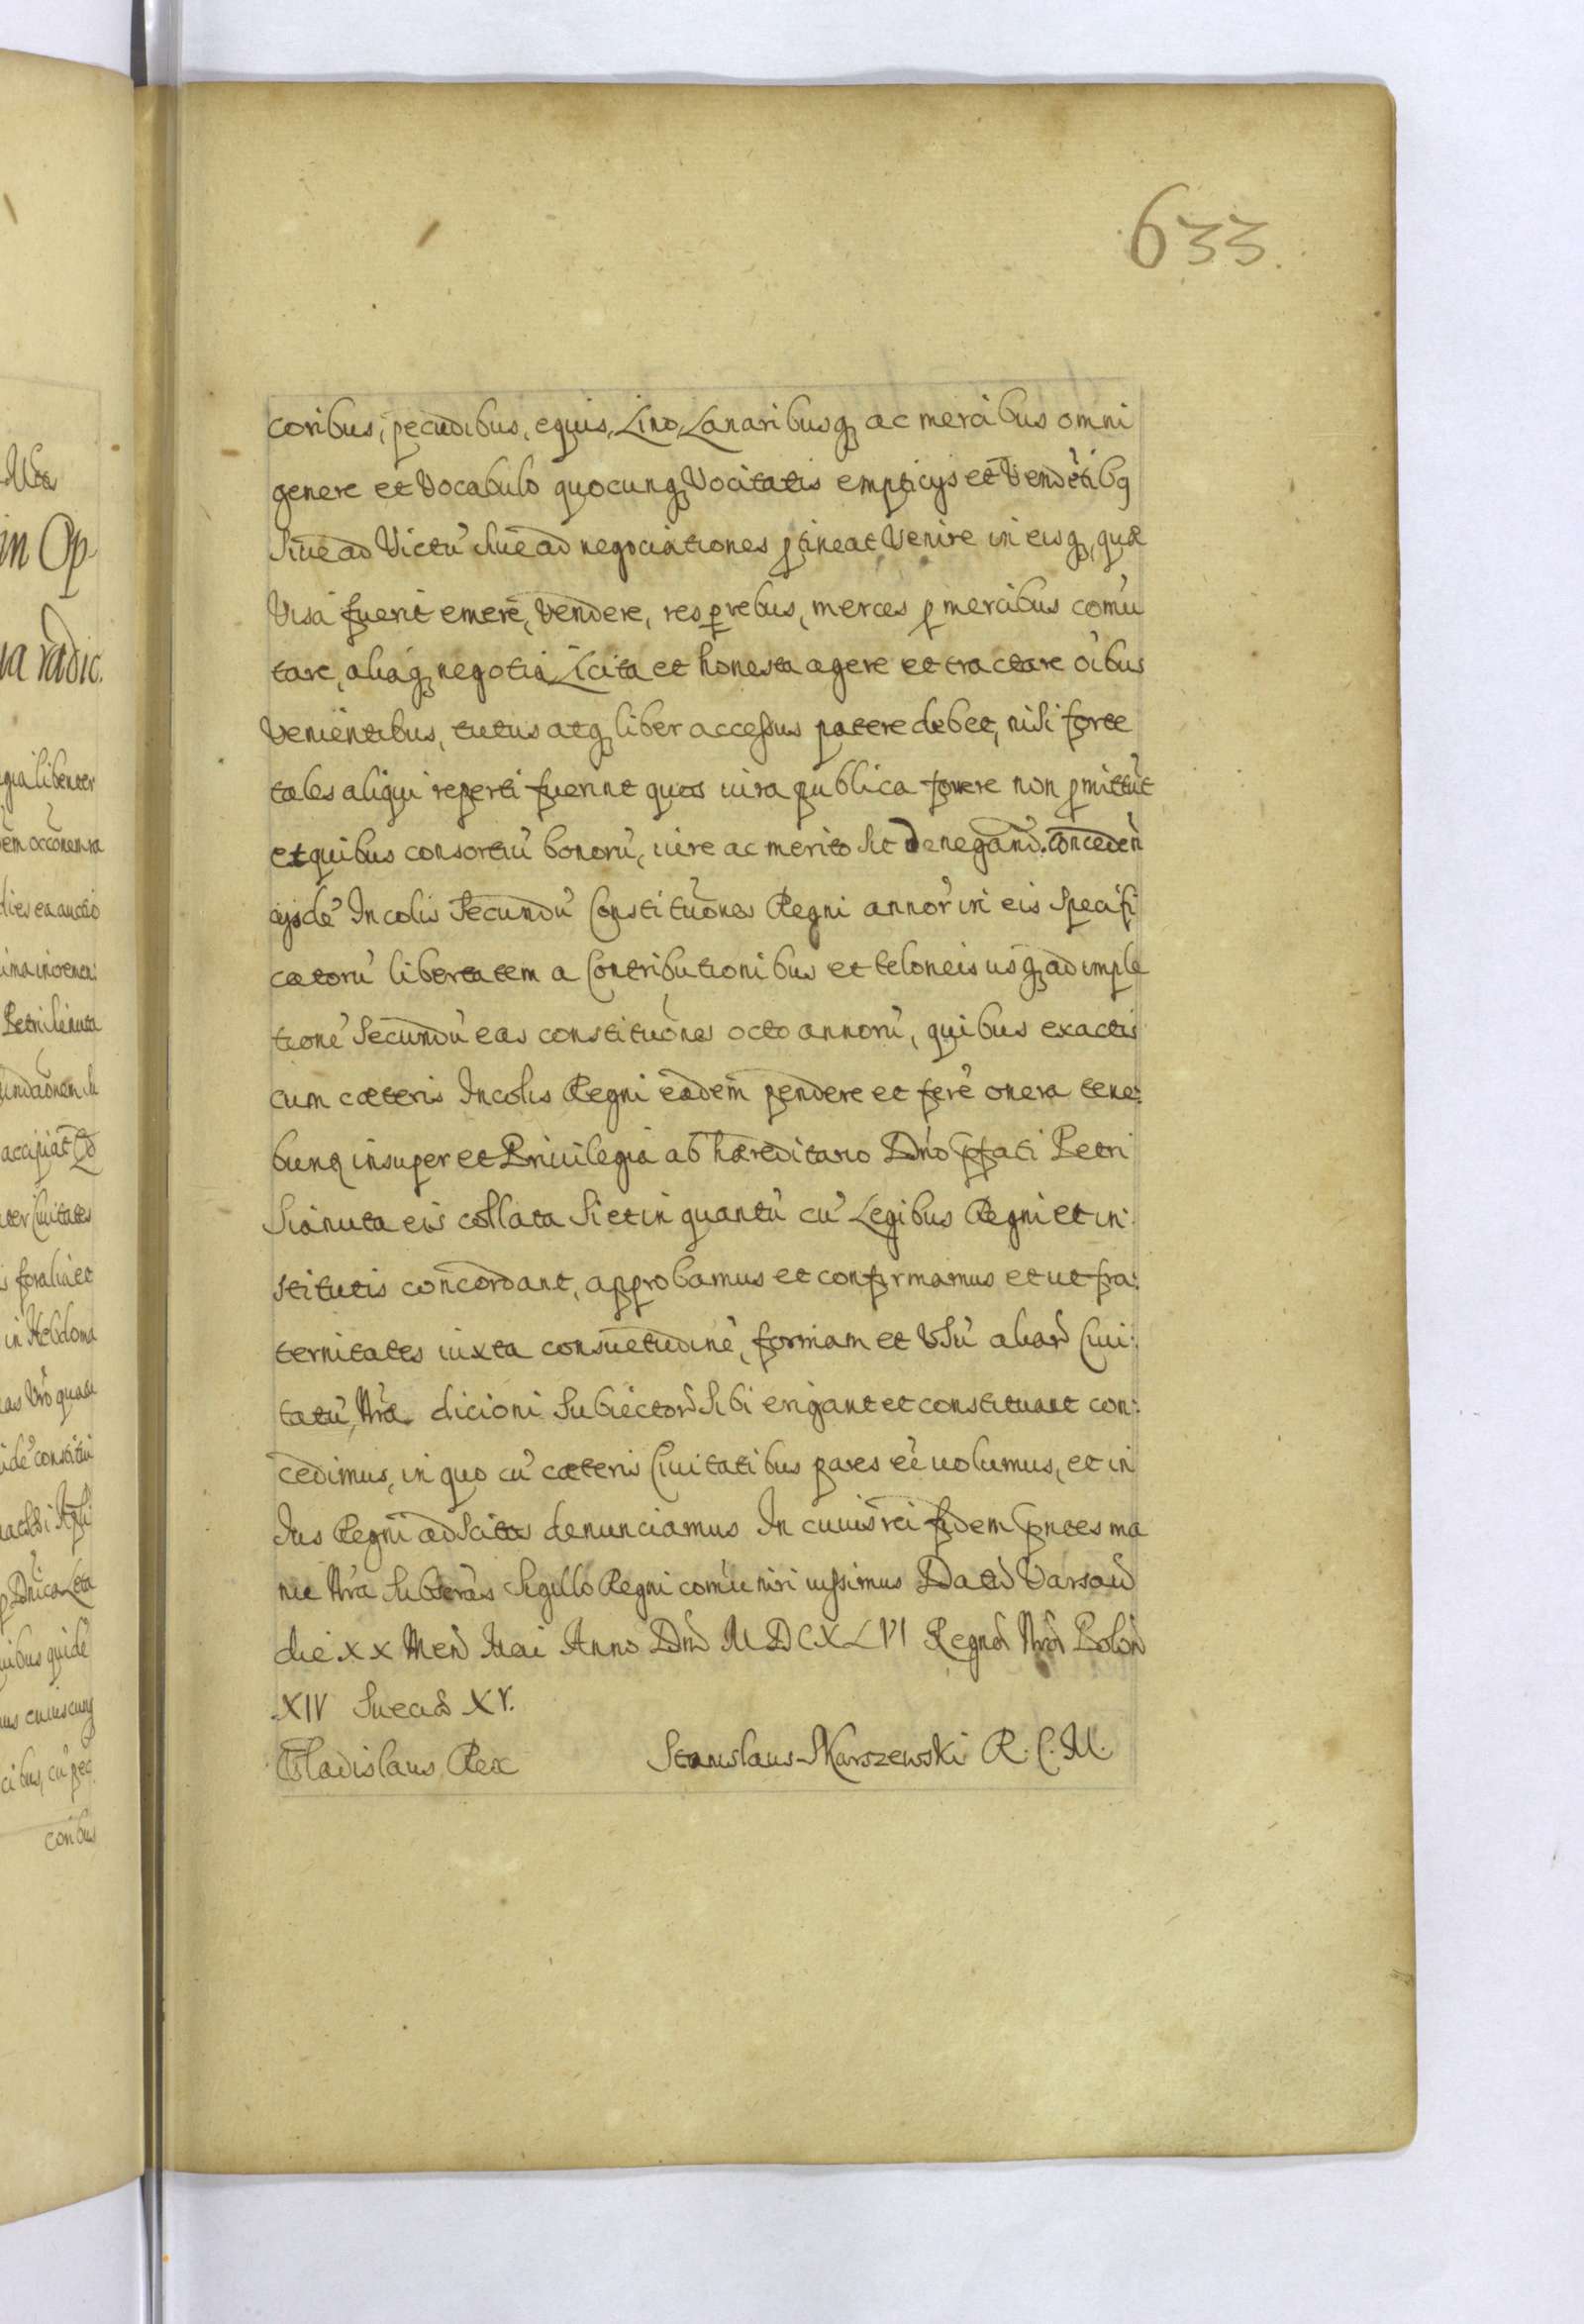 633
coribus, pecudibus, equis, Lino, Lanaribusq ac mercibus omni
genere et Vocabulo quocunq Vocitatis empticys et Vendẽtibq
Siue ad Victũ siue ad negociationes ptineat Venire in eisq, quæ
Visa fuerit emere, Vendere, res p rebus, merces p mercibus comũ
tare, aliaq negotia Licita et honesta agere et tractare oĩbus
Venientibus, tutus atq liber accessus patere debet, nisi forte
tales aliqui reperti fuerint quos iura publica fovere non pmittũt
et quibus consortiũ bonorũ, iure ac merito sit denegand. Conceden
ijsdẽ Incolis Secundũ Constituõnes Regni annor in eis Specifi
catorũ libertatem a Contributionibus et teloneis usq ad imple
tionẽ Secundũ eas constituõnes octo annorũ, quibus exactis
cum cæteris Incolis Regni eadem pendere et ferẽ onera tene:
bunq insuper et Priuilegia ab hæreditario Dno pfati Petri
Sianuta eis collata Si et in quantũ cũ Legibus Regni et in:
stitutis concordant, approbamus et confirmamus et ut fra:
ternitates iuxta consuetudinẽ, formam et Vsũ aliard Ciui:
tatũ, Nræ dicioni Subiectord Sibi erigant et constituant con:
cedimus, in quo cũ cæteris Ciuitatibus pares eẽ uolumus, et in
Ius Regni adscitas denunciamus In cuius rei fidem pntes ma
nu Nra Subscras Sigillo Regni comũniri iussimus Datd Varsavd
die XX Mend Mai Anno Dnd MDCXLVI Regnd Nrd Polond
XIV Suecid XV.
Vladislaus Rex Stanislaus Skarszewski R. C. M.